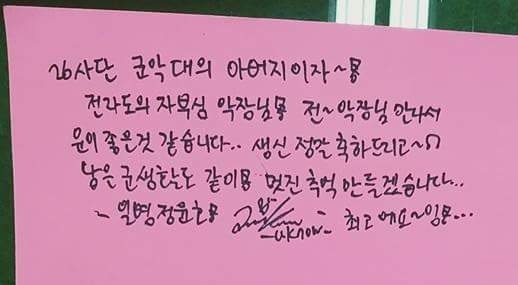 26사단 군악대의 아버지이자~용
전라도의 자부심 악장님용 전~악장님 만나서
운이 좋은것 같습니다.. 생신 정말 축하드리고~
남은 군생활도 같이용 멋진 추억 만들겠습니다..
- 일병 정윤호용 -uknow- 최고에요~임용...